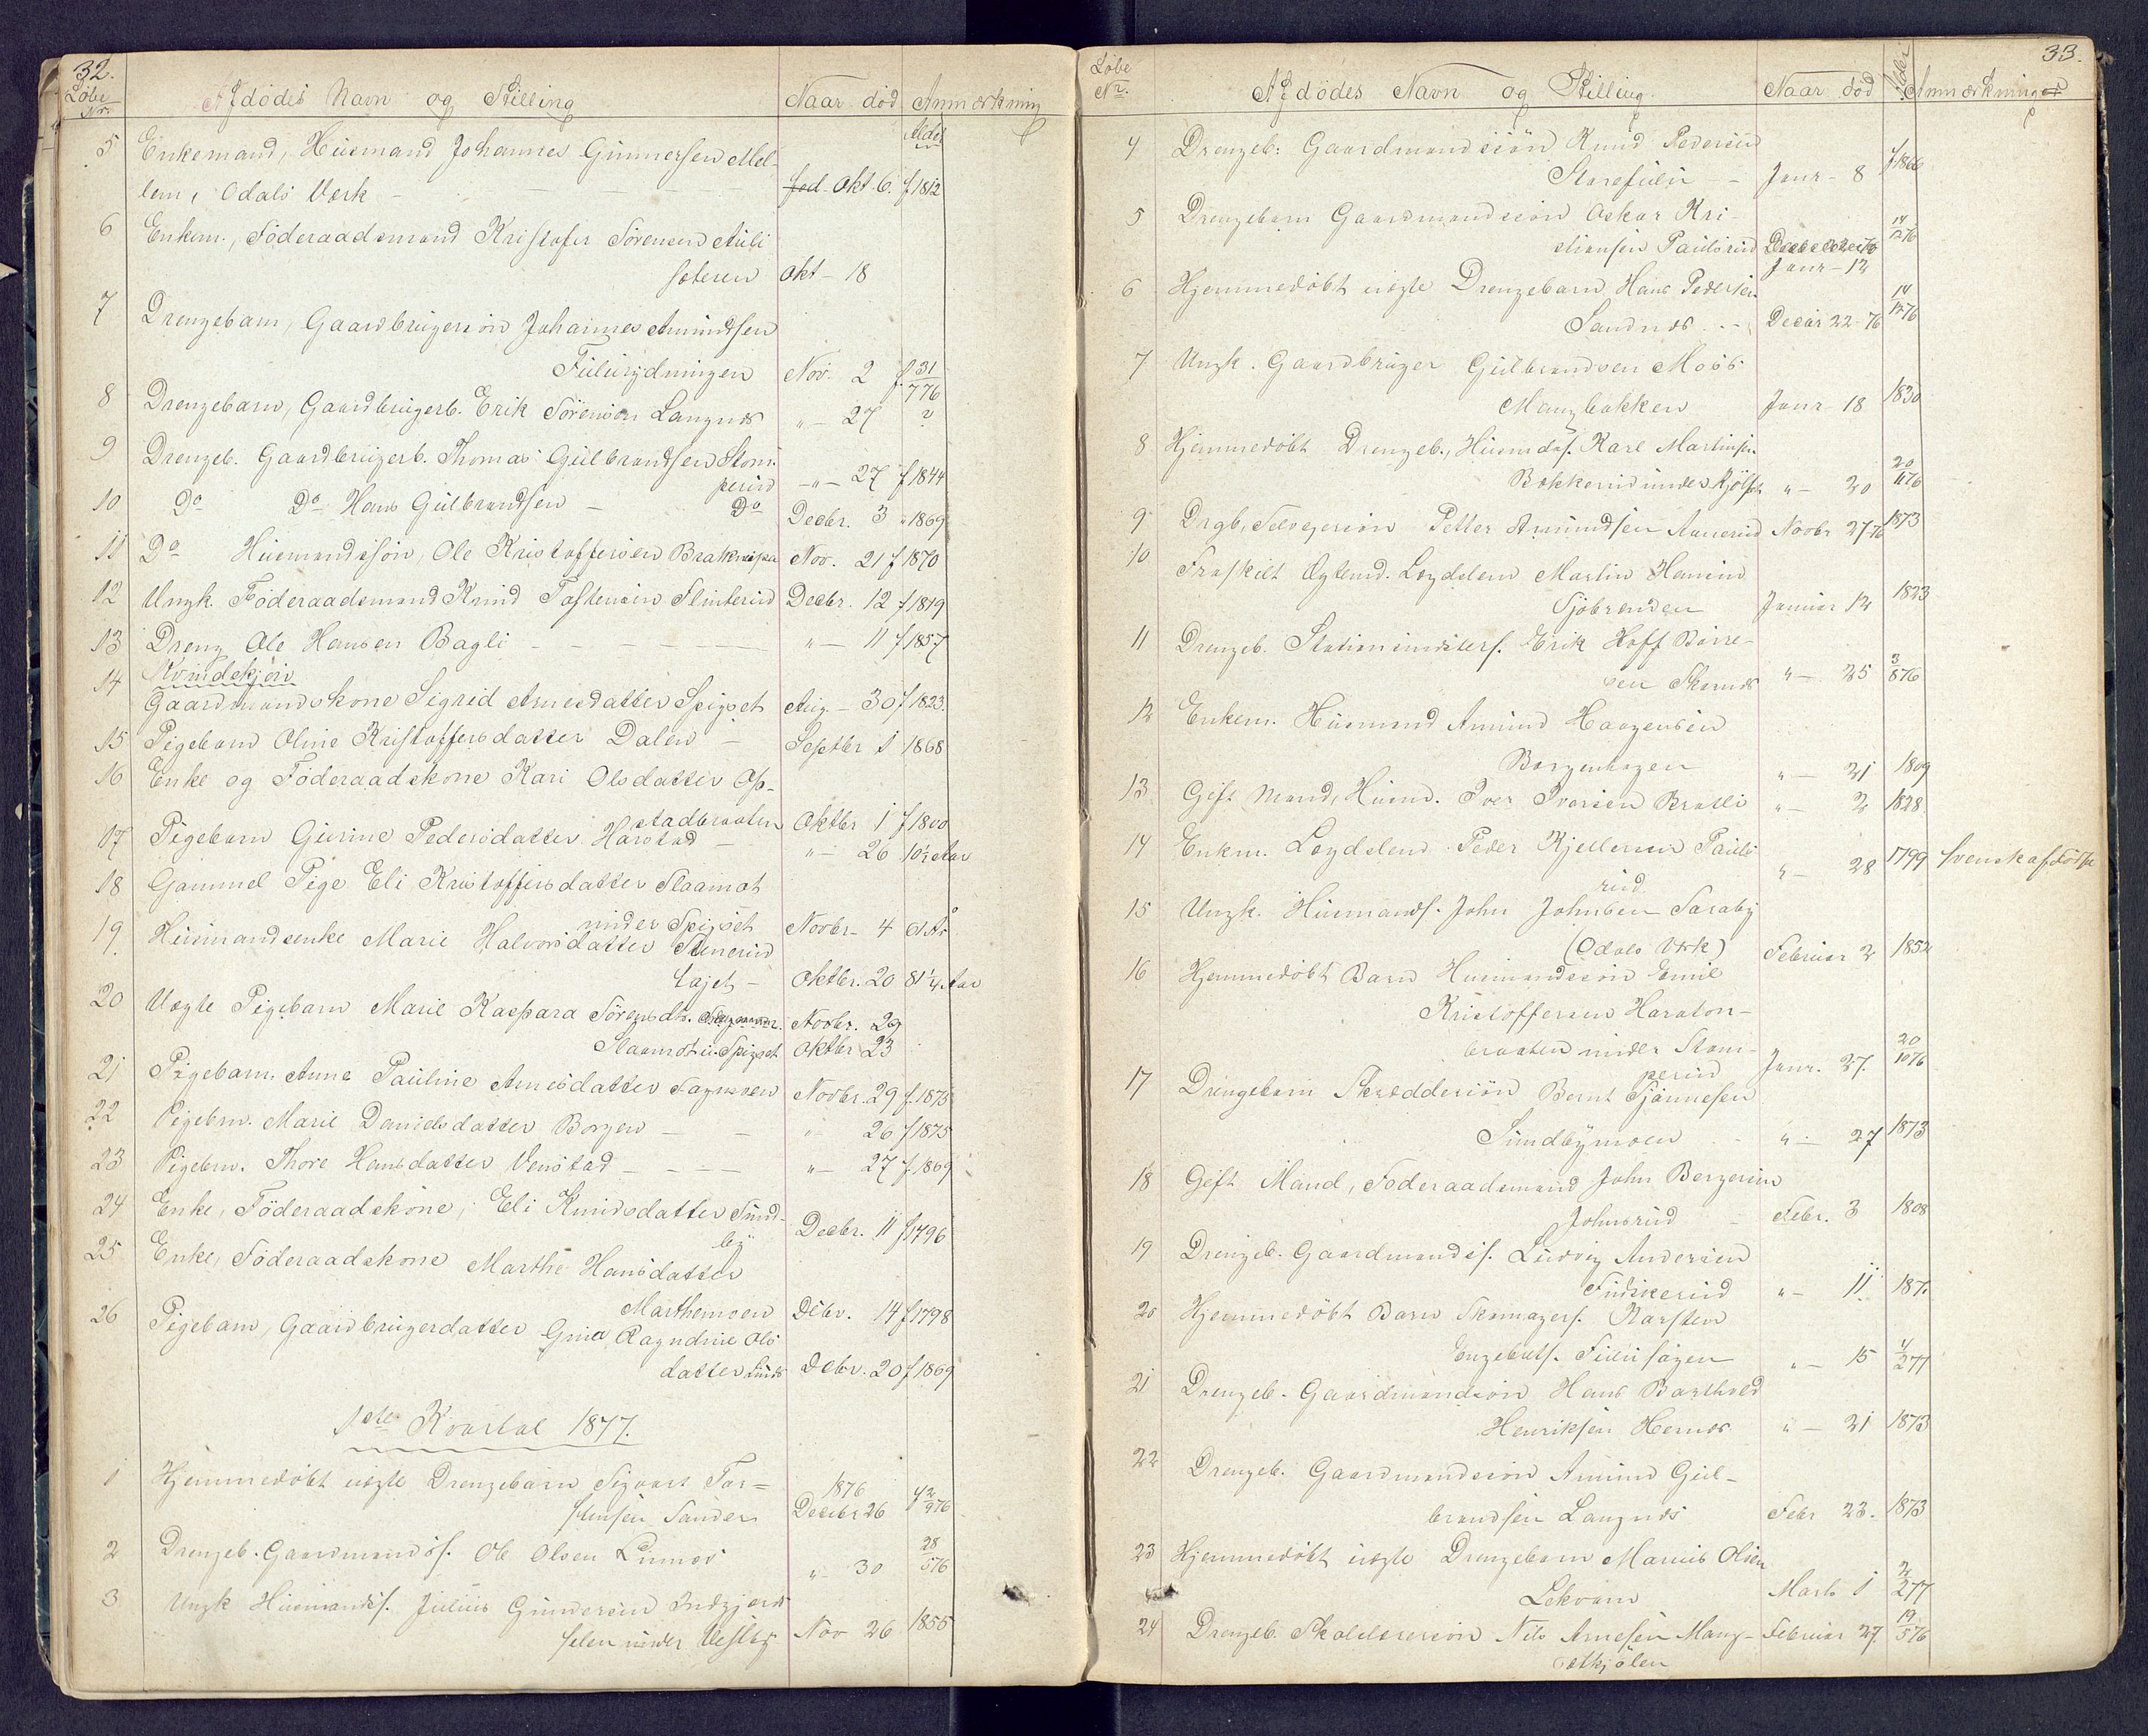 32.
Löbe Nr. Afdödes Navn og Stilling Naar död Anmærkning
Alder
5 Enkemand, Husmand Johannes Gunnersen Mel-
lem, Odals Værk - Okt. 6. f 1812
6 Enkem., Föderaadsmand Kristofer Sörensen Auli
sæteren Okt - 18
7 Drengebarn, Gaardbrugersön Johannes Amundsen
Fulurydningen Nov. 2 f. 31/7 76
8 Drengebarn, Gaardbrugerb. Erik Sörensen Langnæs " - 27 ?
9 Drengeb. Gaardbrugerb. Thomas Gulbrandsen Stom-
perud - " - 27 f 1844
10 Do Do Hans Gulbrandsen - Do Decbr. 3 " 1869
11 Do Husmandssön, Ole Kristoffersen Nov. 21 f 1870
12 Ungk. Föderaadsmand Knud Tostensen Slinterud Decbr. 12 f 1819
13 Dreng Ole Hansen Bagli " - 11 f 1857
Kvindekjön
14 Gaardmandskone Sigrid Arnesdatter Spigset Aug. - 30 f 1823.
15 Pigebarn Oline Kristoffersdatter Dalen - Septbr 1 1868
16 Enke og Föderaadskone Kari Olsdatter Op-
stadbraaten Oktbr 1 f 1800
17 Pigebarn Gurine Pedersdatter Harstad - " - 26 10½ Aar
18 Gammel Pige Eli Kristoffersdatter Slaamot
under Spigset Novbr - 4
19. Husmandsenke Marie Halvorsdatter Stenerud
Oktbr. 20 81¼ Aar
20 Uægte Pigebarn Marie Kaspara Sörensdtr. Novbr. 29
Slaamot u. Spigset Oktbr 23
21 Pigebarn. Anne Pauline Arnesdatter Fagmoen Novbr. 29 f. 1873
22 Pigebrn. Marie Danielsdatter Borgen - - " 26 f 1875
23 Pigebrn. Thore Hansdatter Venstad - - - - " - 27 f. 1869
24 Enke, Föderaadskone, Eli Knudsdatter Sund-
by Decbr. 11 f 1796
25 Enke, Föderaadskone Marthe Hansdatter
Marthemoen Decbr. 14 f 1798
26 Pigebarn, Gaardbrugerdatter Gina Ragndine Ols
datter Lund Decbr. 20 f 1869
1ste Kvartal 1877.
1 Hjemmedöbt uægte Drengebarn Sigvart Tor- 1876
stensen Sander Decbr 26 f 2/9 76
2 Drengeb. Gaardmandss. Ole Olsen Linnæs " - 30 28/5 76
3 Ungk Husmandss. Julius Gundersen Indgjerds
under Vestby Nov 26 1855
33.
Löbe Nr. Afdödes Navn og Stilling. Naar död Alder Anmærkninger
4 Drengeb: Gaardmandssön Knud Pedersen
Storefulu - - Janr - 8 f 1866
5 Drengebarn Gaardmandssön Oskar Kri-
stiansen Paulsrud 14/12 76
Janr - 12
6 Hjemmedöbt uægte Drengebarn Hans Pedersen
Sandnæs - - Decbr 22 - 76 14/12 76
7 Ungk. Gaardbruger Gulbrandsen Moss
Mangbakken Janr 18 1830
8 Hjemmedöbt Drengeb., Husmdss. Karl Martinsen
Bakkerud under Kjölset " - 20 20/11 76
9 Drgb, Selveiersön Petter Amundsen Aanerud Novbr 27 - 76 1873
10 Fraskilt Ægtemd. Lægdslem Martin Hansen
Sjöbrenden Januar 12 1823
11 Drengeb. Stationsmesters. Erik Hoff Börre-
sen Skarnæs " - 25 3/8 76
12 Enkem. Husmand Amund Haagensen
Borgenhagen " - 21 1809
13 Gift Mand, Husmd. Iver Iversen Bratli " - 2 1828
14 Enkm. Lægdslem Peder Kjellesen Pauls
rud " - 28 1799 Svensk af Födsel
15 Ungk. Husmands. John Johnsen Saraby
(Odals Værk) Februar 2 1852
16 Hjemmedöbt Barn Husmandssön Emil
Kristoffersen Haraton-
braaten under Stom-
perud Janr. 27. 20/10 76
17 Drengebarn Skreddersön Bernt Sjönnesen
Sundbymoen - " - 27 1873
18 Gift Mand, Föderaadsmand John Bergersen
Johnsrud - Febr. 3 1808
19 Drengeb. Gaardmandss. Ludvig Andersen
Finskerud " - 11 187.
20 Hjemmedöbt Barn Skomagers. Karsten
Engebrets. Fuluhagen " - 15 4/2 77
21 Drengeb. Gaardmandsön Hans Barthold
Henriksen Hernæs " - 21 1873
22 Drengeb. Gaardmandssön Amund Gul-
brandsen Langnæs Febr 23. 1873
23 Hjemmedöbt uægte Drengebarn Marius Olsen
Lekvam Marts 1 2/2 77
24 Drengeb. Skolelærersön Nils Arnesen Mang- Februar 27. 19/5 76
sætkjölen